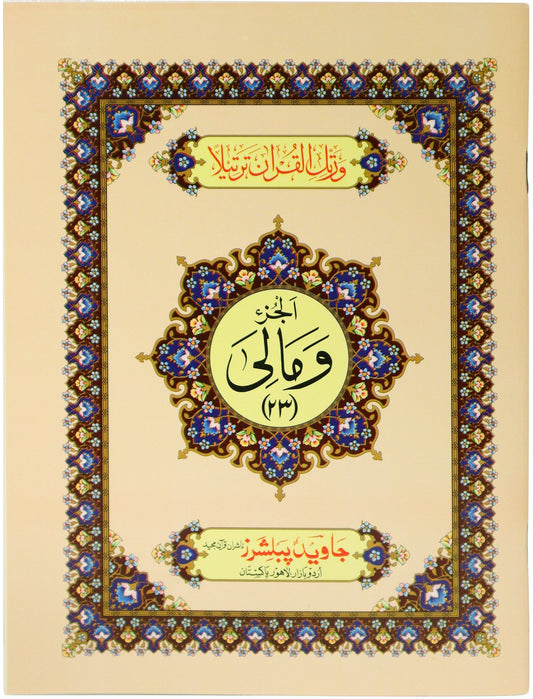 وَرَتِّلِ الْقُرْاٰنَ تَرْتِيْلًا
اَلْجُزْء
وَمَالِیَ
(٢٣)
جاوید پبلشرز ناشران قرآن مجید
اردو بازار، لاهور، پاکستان